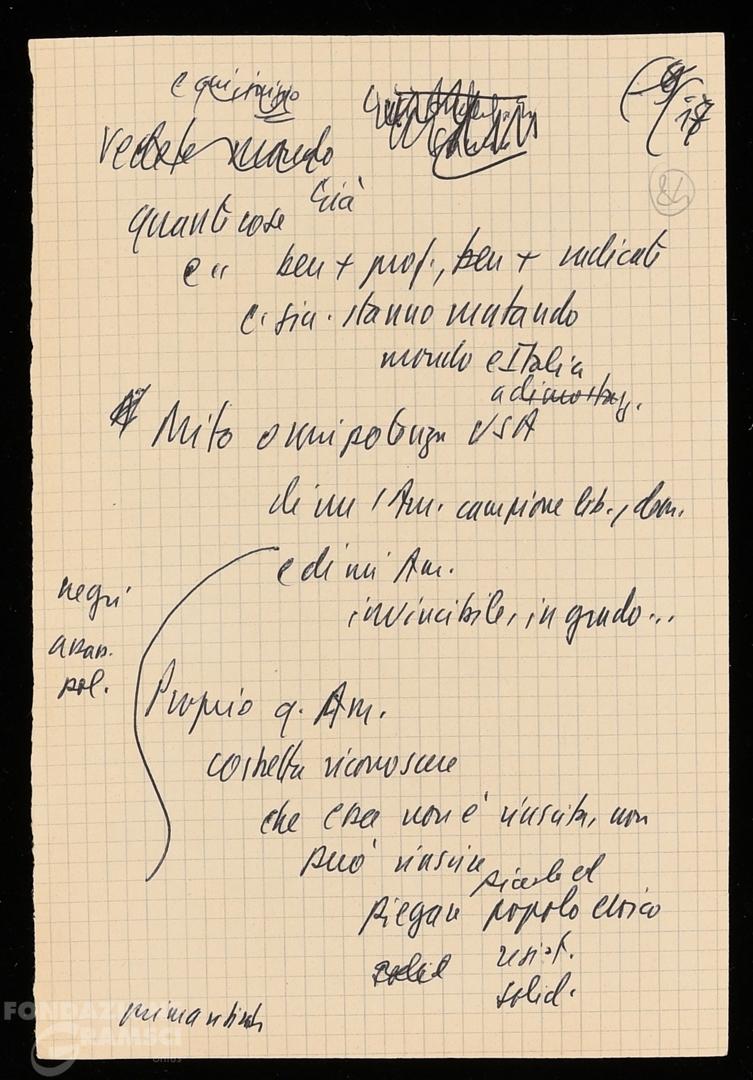 e qui, siamo
Vedete mondo
9/17
84
Già
quante cose
e " ben + prof., ben + radicate
e, sin. stanno mutando
mondo e Italia
a dimostraz.
Mito onnipotenza USA
di un'Am. campione lib., dem.
e di un Am.
invincibile, in grado...
negri
assas.
pol.
Proprio q. Am.
costretta riconoscere
che essa non è riuscita, non
può riuscire
piccolo ed
piegare popolo eroico
solid
resist.
solid.
FONDAZIONE
GRAMSCI
onlus